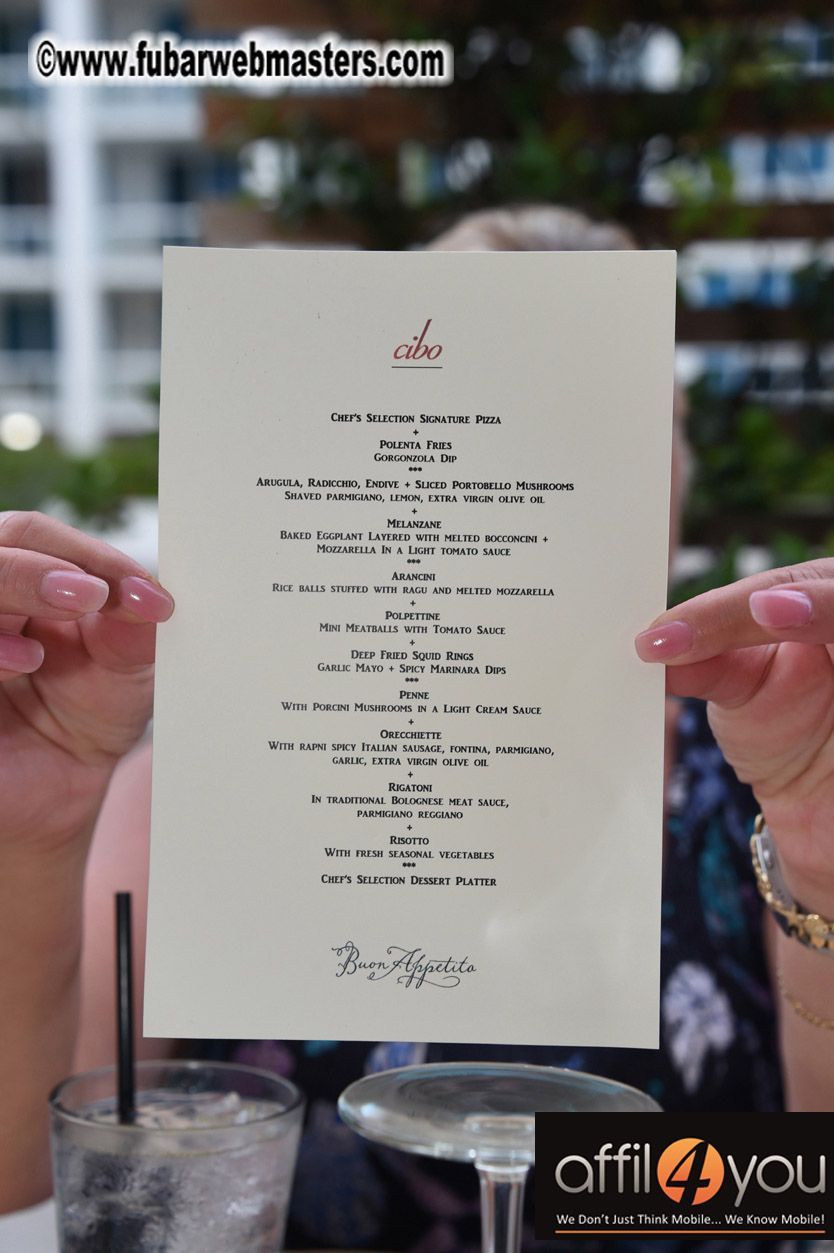 ©www.fubarwebmasters.com
cibo
Chef's Selection Signature Pizza
+
Polenta Fries
Gorgonzola Dip
***
Arugula, Radicchio, Endive + Sliced Portobello Mushrooms
Shaved parmigiano, lemon, extra virgin olive oil
+
Melanzane
Baked Eggplant Layered with melted bocconcini +
Mozzarella In a Light tomato sauce
***
Arancini
Rice balls stuffed with ragu and melted mozzarella
+
Polpettine
Mini Meatballs with Tomato Sauce
+
Deep Fried Squid Rings
Garlic Mayo + Spicy Marinara Dips
***
Penne
With Porcini Mushrooms in a Light Cream Sauce
+
Orecchiette
With rapni spicy Italian sausage, fontina, parmigiano,
garlic, extra virgin olive oil
+
Rigatoni
In traditional Bolognese meat sauce,
parmigiano reggiano
+
Risotto
With fresh seasonal vegetables
***
Chef's Selection Dessert Platter
Buon Appetito
affil4you
We Don't Just Think Mobile... We Know Mobile!